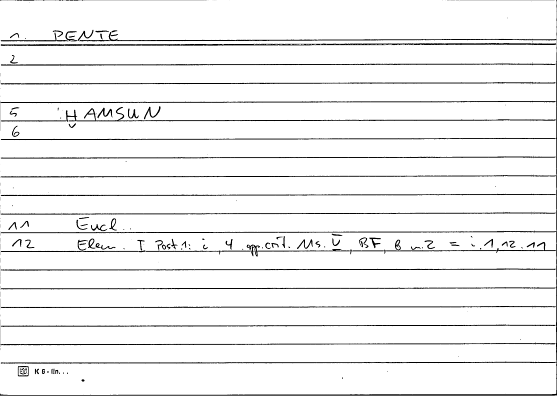 1. PENTE
2
5 ḪAMSUN
6
11 Eucl..
12 Elem. I Post 1: i, 4 app.crit. Ms. U, BF, B n.2 = i.1,12.11
K 6 - lin...